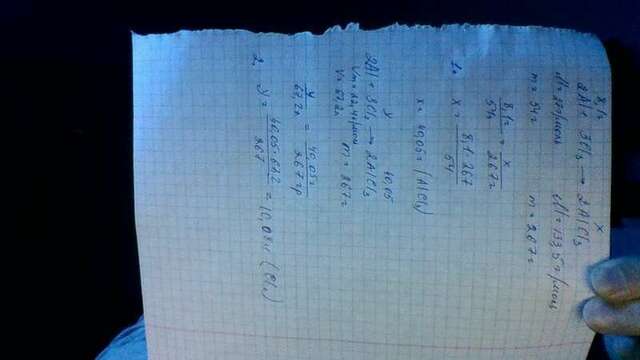 8,1г x
2Al + 3Cl₂ → 2AlCl₃
M = 27г/моль M = 133,5г/моль
m = 54г m = 267г
8,1г/54г = x/267г
1. x = 8,1·267/54
x = 40,05г (AlCl₃)
y 40,05
2Al + 3Cl₂ → 2AlCl₃
Vm = 22,4г/моль m = 267г
V = 67,2л
y/67,2л = 40,05г/267гр
2. y = 40,05·67,2/267 = 10,08л (Cl₂)